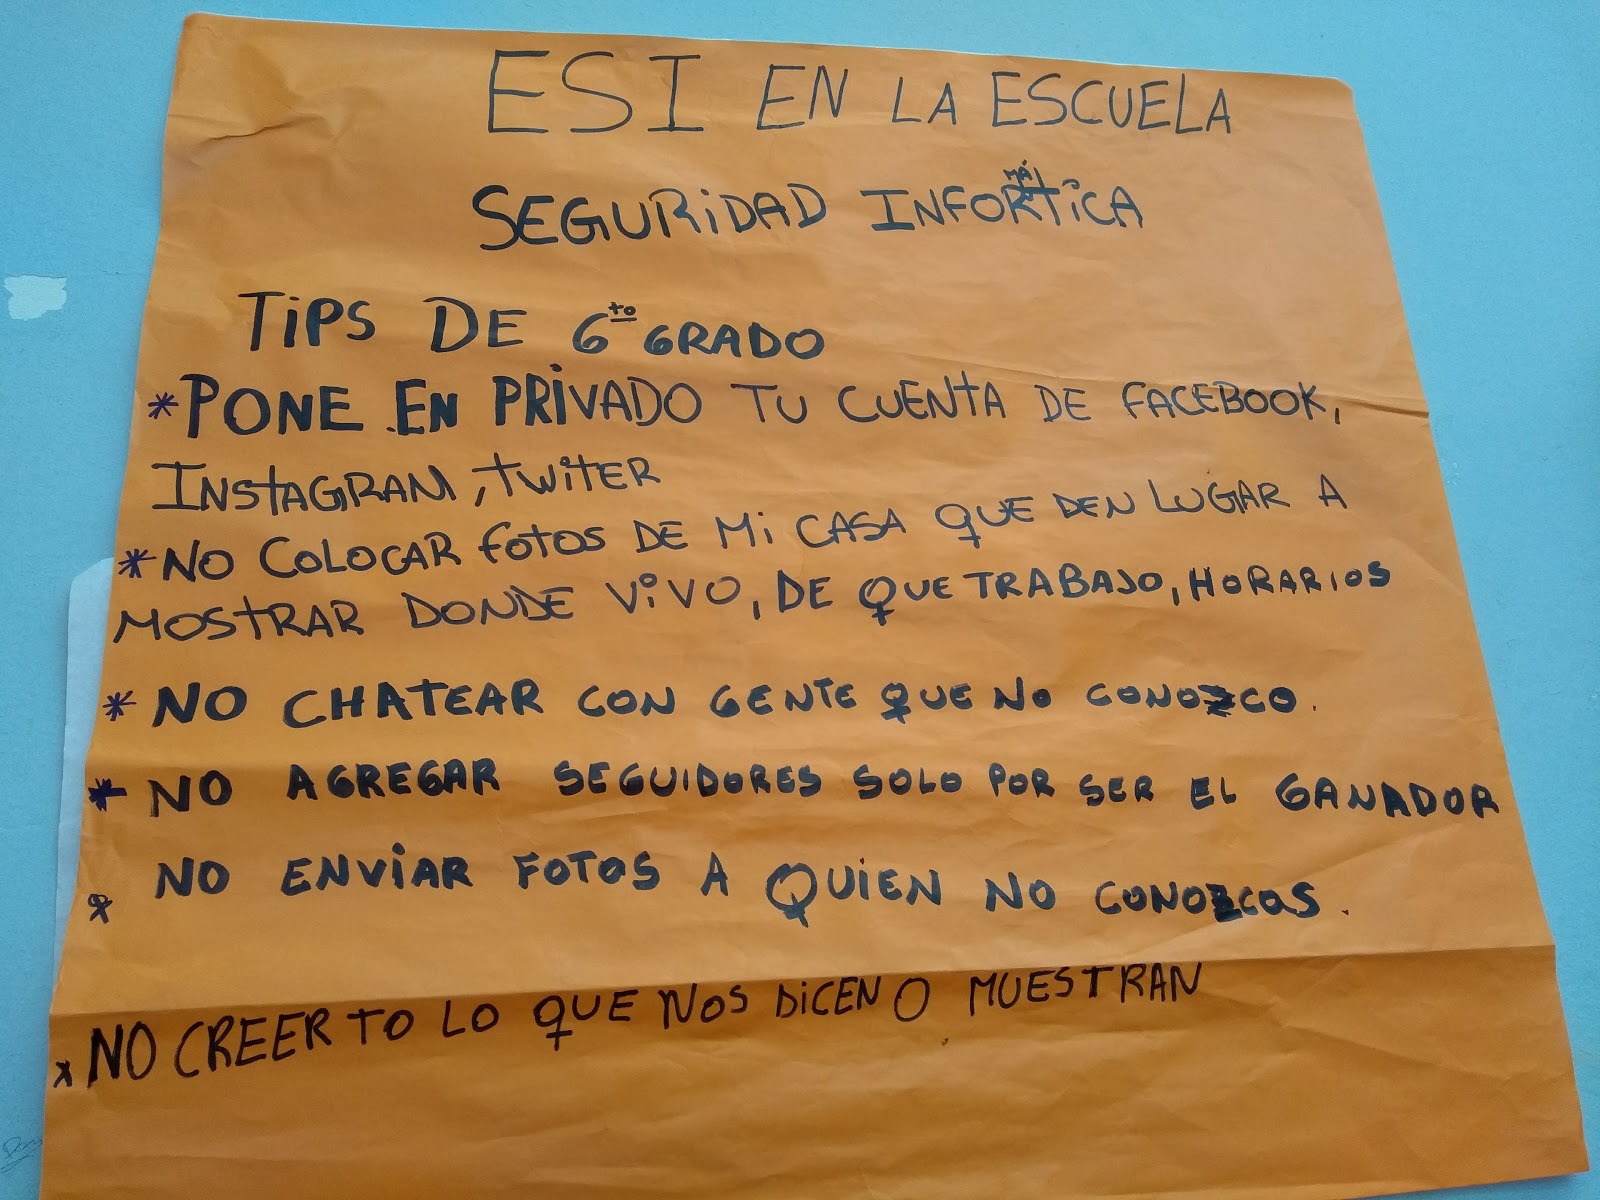 ESI EN LA ESCUELA
SEGURIDAD INFORMÁTICA
TIPS DE 6to GRADO
*PONE EN PRIVADO TU CUENTA DE FACEBOOK,
INSTAGRAM, TWITER
*NO COLOCAR FOTOS DE MI CASA QUE DEN LUGAR A
MOSTRAR DONDE VIVO, DE QUE TRABAJO, HORARIOS
* NO CHATEAR CON GENTE QUE NO CONOZCO.
* NO AGREGAR SEGUIDORES SOLO POR SER EL GANADOR
* NO ENVIAR FOTOS A QUIEN NO CONOZCAS.
* NO CREER TO LO QUE NOS DICEN O MUESTRAN